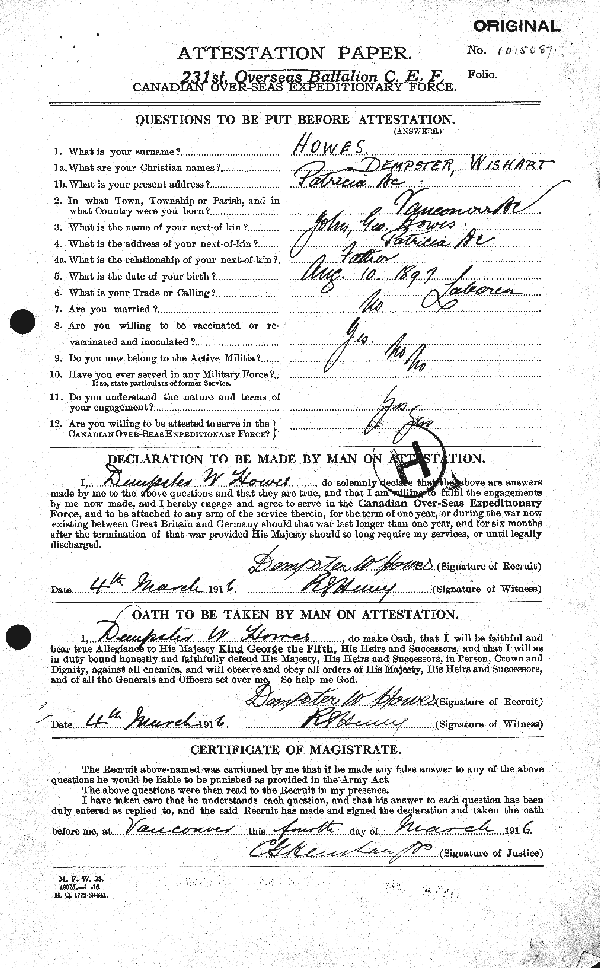 ORIGINAL
ATTESTATION PAPER.
No.
231st. Overseas Battalion C. E. F.
Folio.
CANADIAN OVER-SEAS EXPEDITIONARY FORCE.
QUESTIONS TO BE PUT BEFORE ATTESTATION.
(ANSWERS)
1. What is your surname? HOWES
1a. What are your Christian names? DEMPSTER, WISHART
1b. What is your present address? Patricia Bc
2. In what Town, Township or Parish, and in
what Country were you born? Vancouver Bc
3. What is the name of your next-of-kin? John Geo. Howes
4. What is the address of your next-of-kin? Patricia Bc
4a. What is the relationship of your next-of-kin? Father
5. What is the date of your birth? Aug 10. 1897
6. What is your Trade or Calling? Laborer
7. Are you married? No
8. Are you willing to be vaccinated or re-
vaccinated and inoculated? Yes
9. Do you now belong to the Active Militia? No
10. Have you ever served in any Military Force? No
If so, state particulars of former Service.
11. Do you understand the nature and terms of
your engagement? Yes
12. Are you willing to be attested to serve in the
CANADIAN OVER-SEAS EXPEDITIONARY FORCE? Yes
H
DECLARATION TO BE MADE BY MAN ON ATTESTATION.
I, Dempster W Howes, do solemnly declare that the above are answers
made by me to the above questions and that they are true, and that I am willing to fulfil the engagements
by me now made, and I hereby engage and agree to serve in the Canadian Over-Seas Expeditionary
Force, and to be attached to any arm of the service therein, for the term of one year, or during the war now
existing between Great Britain and Germany should that war last longer than one year, and for six months
after the termination of that war provided His Majesty should so long require my services, or until legally
discharged.
Dempster W Howes (Signature of Recruit)
Date 4th March 1916 (Signature of Witness)
OATH TO BE TAKEN BY MAN ON ATTESTATION.
I, Dempster W Howes, do make Oath, that I will be faithful and
bear true Allegiance to His Majesty King George the Fifth, His Heirs and Successors, and that I will as
in duty bound honestly and faithfully defend His Majesty, His Heirs and Successors, in Person, Crown and
Dignity, against all enemies, and will observe and obey all orders of His Majesty, His Heirs and Successors,
and of all the Generals and Officers set over me. So help me God.
Dempster W Howes (Signature of Recruit)
Date 4th March 1916 (Signature of Witness)
CERTIFICATE OF MAGISTRATE.
The Recruit above-named was cautioned by me that if he made any false answer to any of the above
questions he would be liable to be punished as provided in the Army Act.
The above questions were then read to the Recruit in my presence.
I have taken care that he understands each question, and that his answer to each question has been
duly entered as replied to, and the said Recruit has made and signed the declaration and taken the oath
before me, at Vancouver this fourth day of March 1916.
(Signature of Justice)
M. F. W. 23.